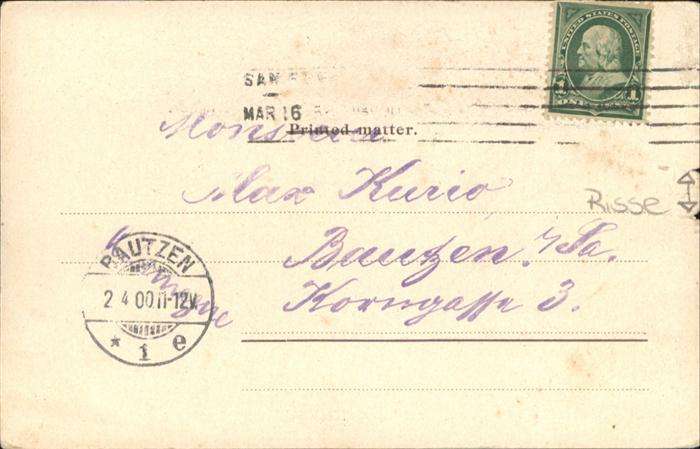 UNITED STATES POSTAGE
1 1
SAN
MAR 16
Printed matter.
Monsieur
Max Kurio
Risse
Bautzen i/Sa.
Korngasse 3.
BAUTZEN
2 4 00 11-12V
* 1 e